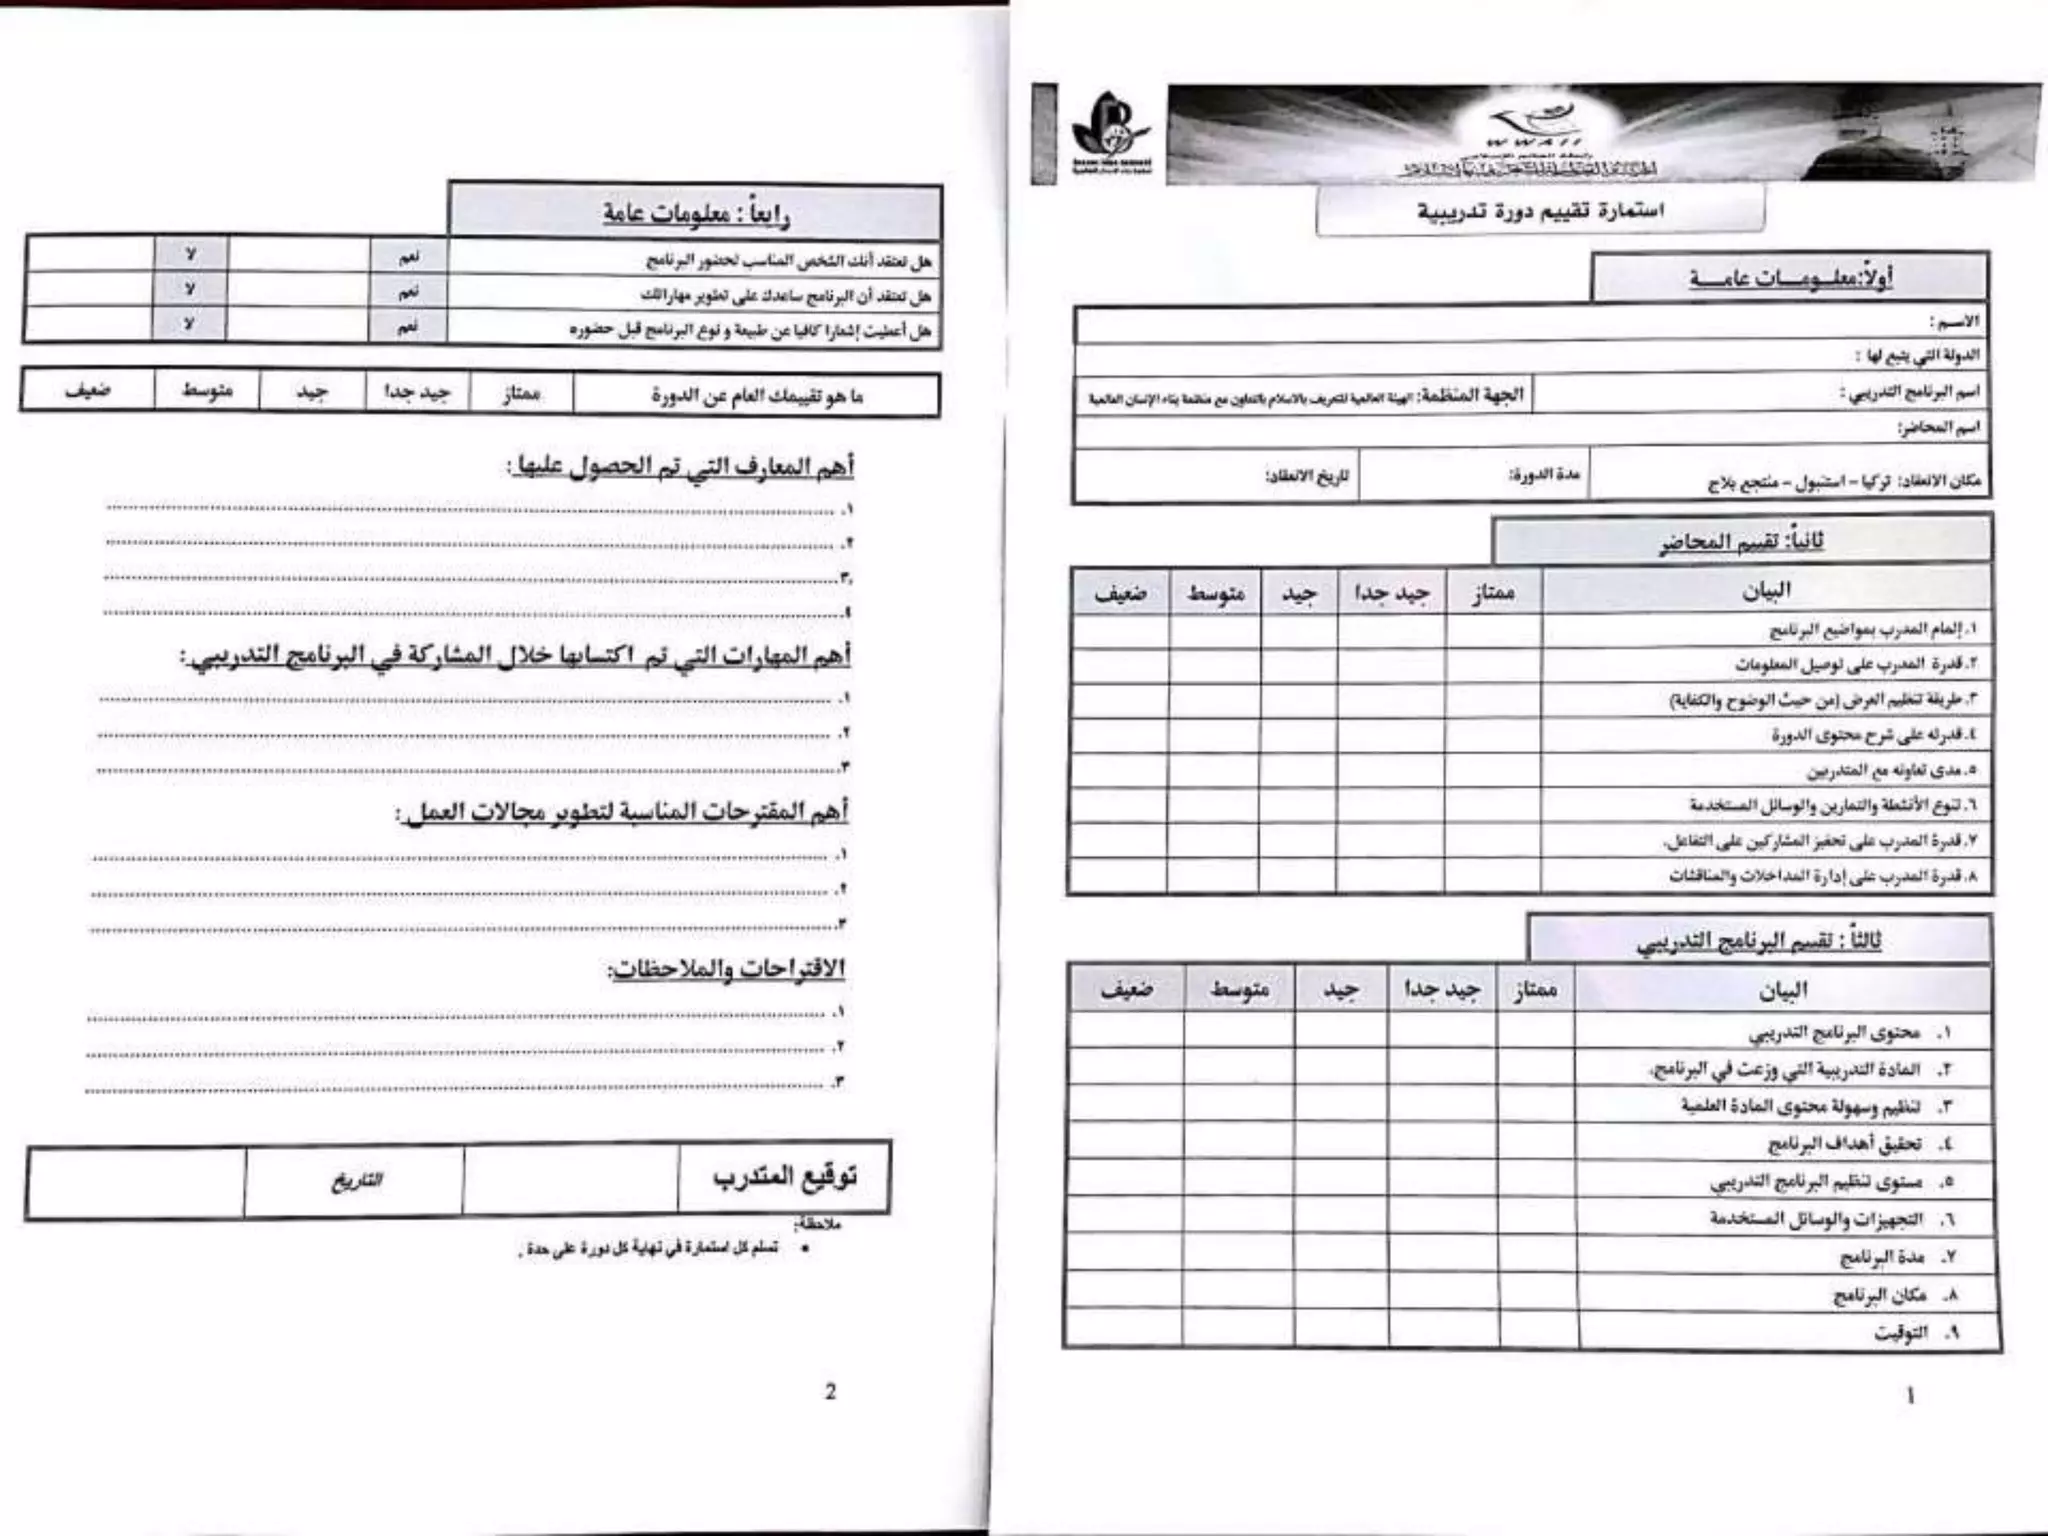 WWAII
استمارة تقييم دورة تدريبية
أولاً:معلـــومـــات عامـــة
الاسـم :
الدولة التي يتبع لها :
اسم البرنامج التدريبي :
الجهة المنظمة: الهيئة العالمية للتعريف بالاسلام بالتعاون مع منظمة بناء الإنسان العالمية
اسم المحاضر:
مكان الانعقاد: تركيا – استنبول – منتجع بلاج
مدة الدورة:
تاريخ الانعقاد:
ثانياً: تقييم المحاضر
البيان ممتاز جيد جدا جيد متوسط ضعيف
١. إلمام المدرب بمواضيع البرنامج
٢. قدرة المدرب على توصيل المعلومات
٣. طريقة تنظيم العرض (من حيث الوضوح والكفاية)
٤. قدرته على شرح محتوى الدورة
٥. مدى تعاونه مع المتدربين
٦. تنوع الأنشطة والتمارين والوسائل المستخدمة
٧. قدرة المدرب على تحفيز المشاركين على التفاعل.
٨. قدرة المدرب على إدارة المداخلات والمناقشات
ثالثاً : تقييم البرنامج التدريبي
البيان ممتاز جيد جدا جيد متوسط ضعيف
١. محتوى البرنامج التدريبي
٢. المادة التدريبية التي وزعت في البرنامج.
٣. تنظيم وسهولة محتوى المادة العلمية
٤. تحقيق أهداف البرنامج
٥. مستوى تنظيم البرنامج التدريبي
٦. التجهيزات والوسائل المستخدمة
٧. مدة البرنامج
٨. مكان البرنامج
٩. التوقيت
١
رابعاً : معلومات عامة
هل تعتقد أنك الشخص المناسب لحضور البرنامج نعم لا
هل تعتقد أن البرنامج ساعدك على تطوير مهاراتك نعم لا
هل أعطيت إشعارا كافيا عن طبيعة و نوع البرنامج قبل حضوره نعم لا
ما هو تقييمك العام عن الدورة ممتاز جيد جدا جيد متوسط ضعيف
أهم المعارف التي تم الحصول عليها :
١.
٢.
٣.
٤.
أهم المهارات التي تم اكتسابها خلال المشاركة في البرنامج التدريبي :
١.
٢.
٣.
أهم المقترحات المناسبة لتطوير مجالات العمل :
١.
٢.
٣.
الاقتراحات والملاحظات:
١.
٢.
٣.
توقيع المتدرب التاريخ
ملاحظة:
• تسلم كل استمارة في نهاية كل دورة على حدة .
2